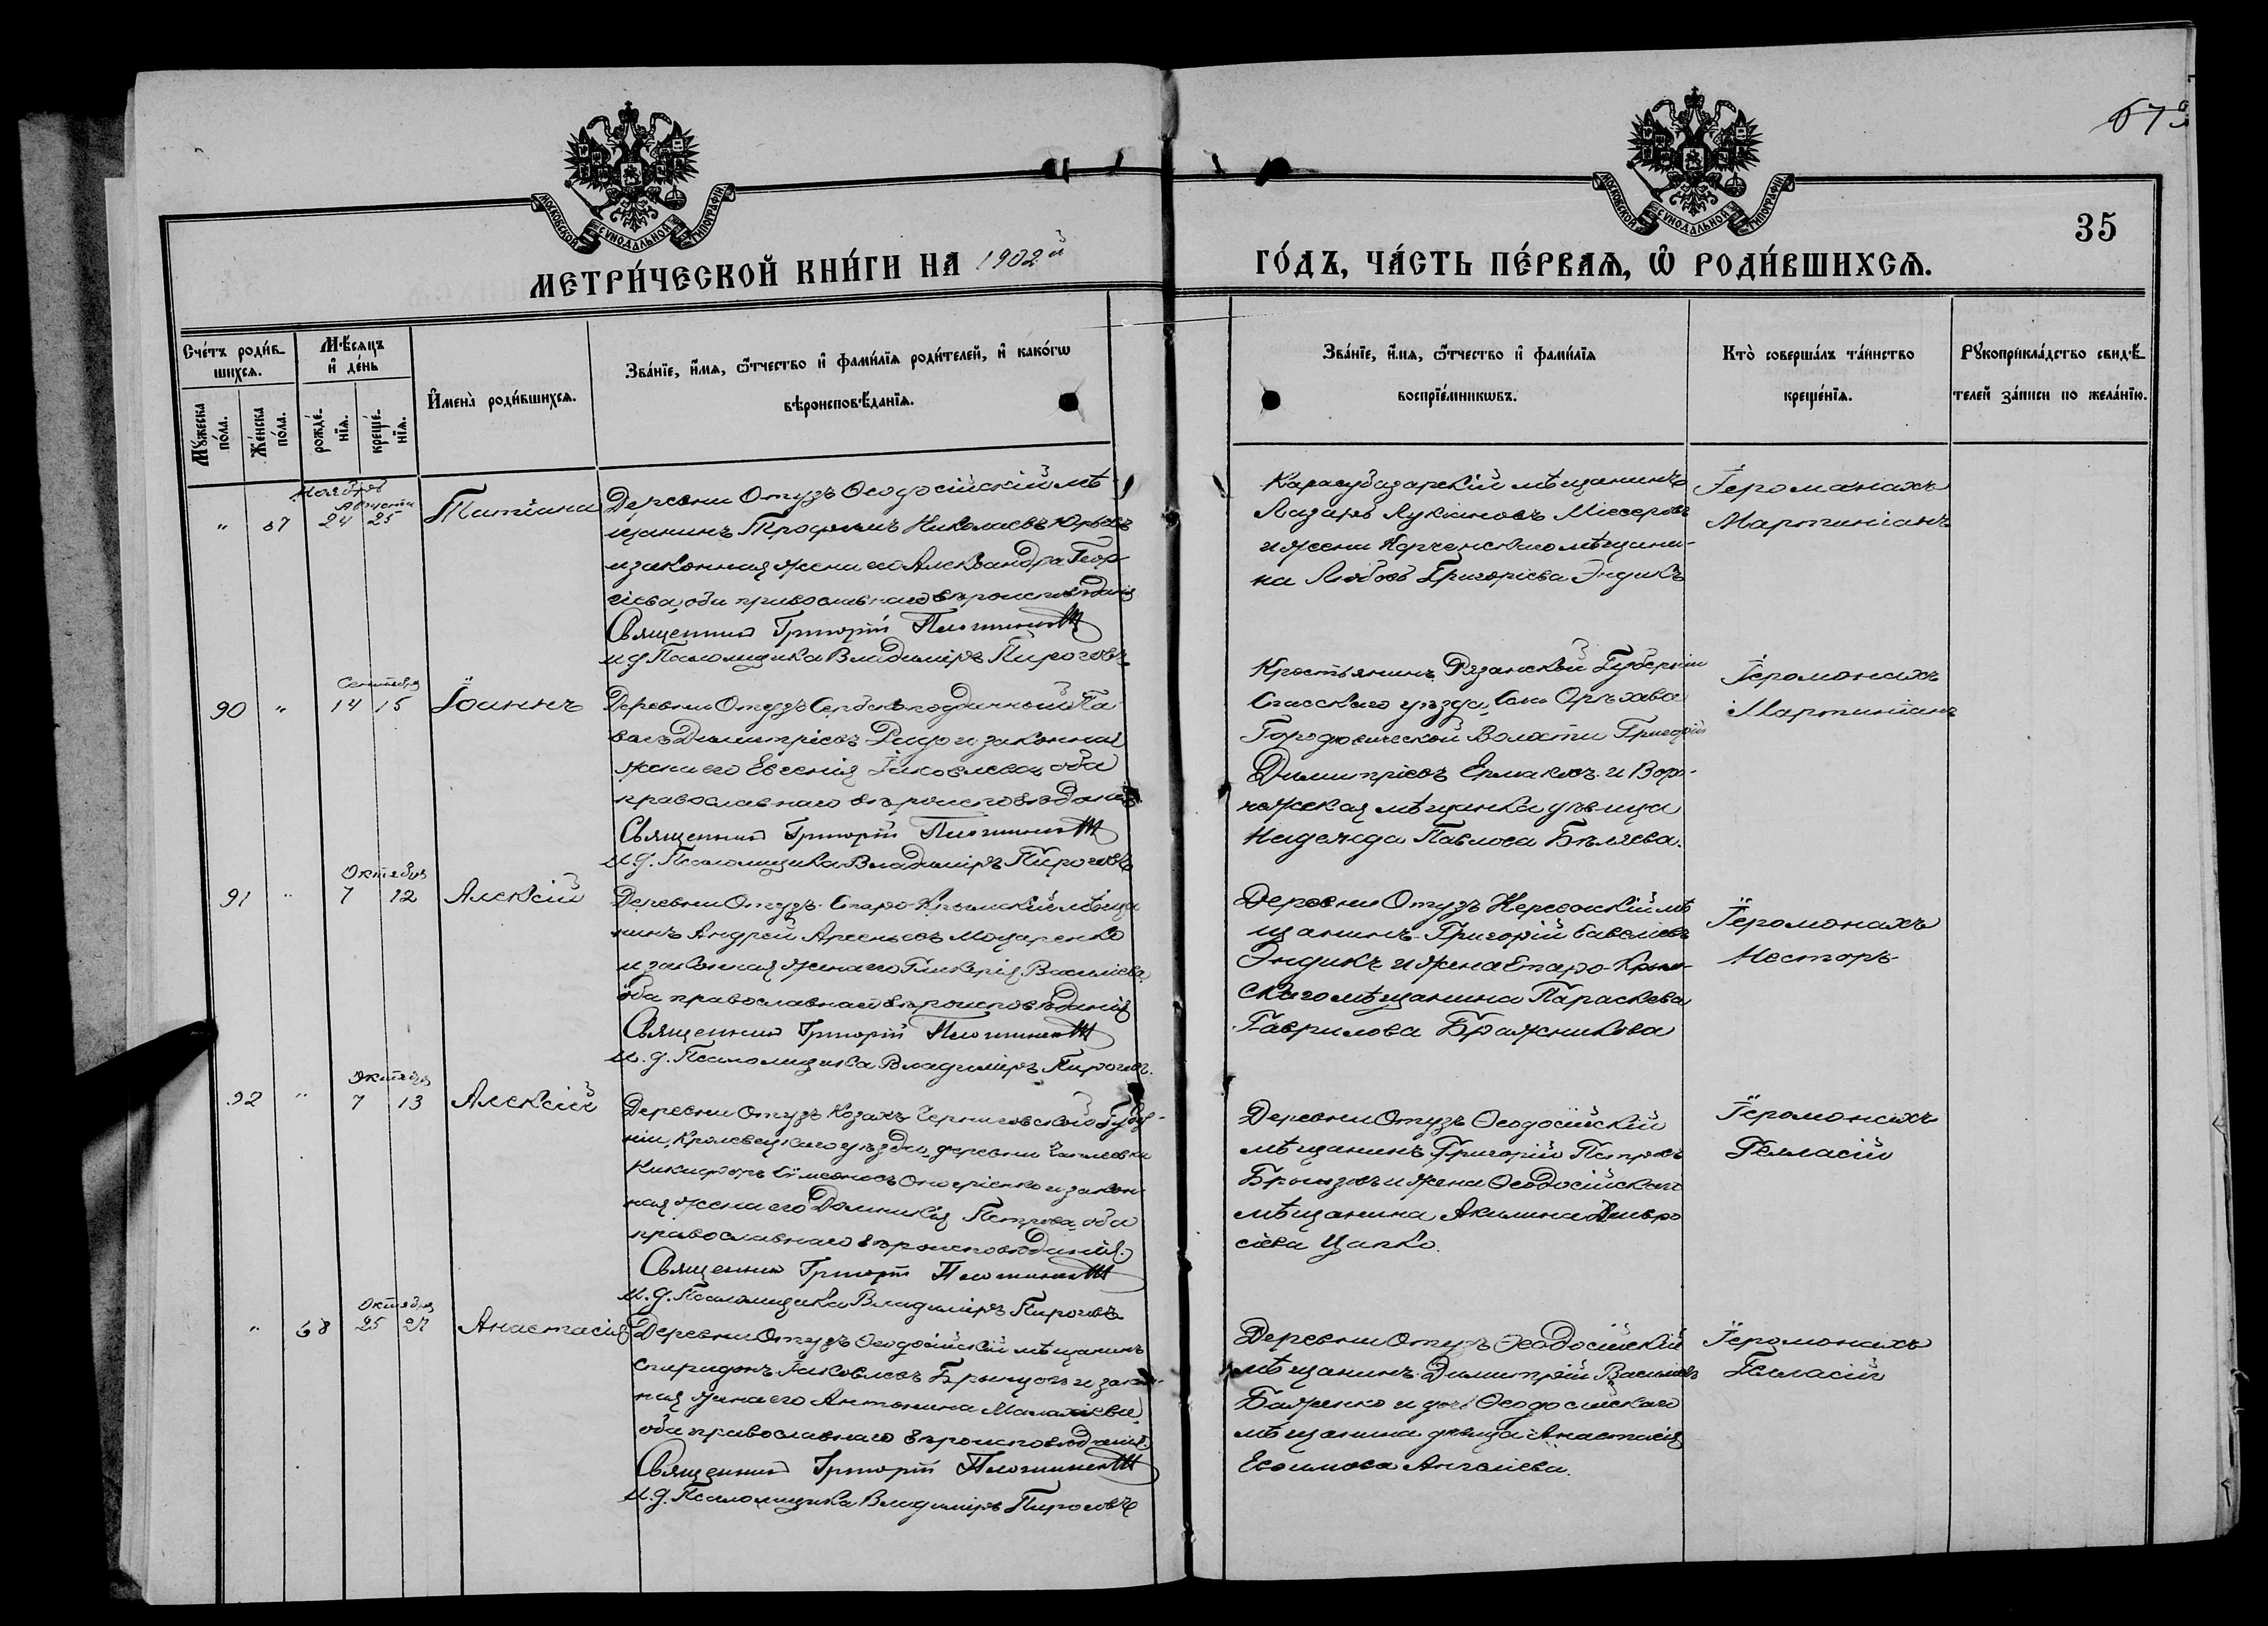 673
МОСКОВСКОЙ СѴНОДАЛЬНОЙ ТИПОГРАФІИ
МОСКОВСКОЙ СѴНОДАЛЬНОЙ ТИПОГРАФІИ
35
МЕТРИ́ЧЕСКОЙ КНИ́ГИ НА 1902й
ГО́ДЪ, ЧА́СТЬ ПЕ́РВАѦ, Ѡ РОДИ́ВШИХСѦ.
Сче́тъ роди́в-
шихсѧ.
Мѣ́сѧцъ
и҆ де́нь
Мꙋ́жеска
по́ла.
Же́нска
по́ла.
рожде́-
нїѧ.
креще́-
нїѧ.
И҆мена̀ роди́вшихсѧ.
Зва́нїе, и҆́мѧ, ѻ҆́тчество и҆ фами́лїѧ роди́телей, и҆ како́гѡ
вѣроисповѣ́данїѧ.
Зва́нїе, и҆́мѧ, ѻ҆́тчество и҆ фами́лїѧ
воспрїе́мникѡвъ.
Кто̀ соверша́лъ та́инство
креще́нїѧ.
Рꙋкоприкла́дство свидѣ́-
телей за́писи по жела́нїю.
" 67
Августа
24 25
Татіана
Деревни Отузъ Ѳеодосійскій мѣ-
щанинъ Трофимъ Николаевъ
и законная жена его Александра Геор-
гіева, оба православнаго вѣроисповѣданія
Священникъ Григорій
И д Псаломщика Владиміръ Пироговъ
Карасубазарскій мѣщанинъ
Лазарь Лукіановъ
и жена Керченскаго мѣщани-
на Любовь Григоріева Эндикъ
Іеромонахъ
Мартиніанъ
90 "
Сентября
14 15
Іоаннъ
Деревни Отузъ Сербскоподданный Па-
велъ Димитріевъ и законная
жена его Евгенія Іаковлева, оба
православнаго вѣроисповѣданія
Священникъ Григорій
И.д. Псаломщика Владиміръ Пироговъ
Крестьянинъ Рязанской Губерніи
Спасскаго уѣзда, Села Орѣхова
Городковической Волости Григорій
Димитріевъ Ермаковъ и Воро-
нежская мѣщанка дѣвица
Надежда Павлова Бѣляева.
Іеромонахъ
Мартиніанъ
91 "
Октября
7 12
Алексій
Деревни Отузъ Старо-Крымскій мѣща-
нинъ Андрей Арсеньевъ Моцаренко
и законная жена его Гликерія Васильева
оба православнаго вѣроисповѣданія
Священникъ Григорій
И.д. Псаломщика Владиміръ Пироговъ.
Деревни Отузъ мѣ-
щанинъ Григорій Савельевъ
Эндикъ и жена Старо-Крым-
скаго мѣщанина Параскева
Гаврилова Бражникова
Іеромонахъ
Несторъ
92 "
Октября
7 13
Алексій
Деревни Отузъ Козакъ Черниговской Губер-
ніи, Кролевецкаго уѣзда, деревни
Никифоръ Симеоновъ и закон-
ная жена его Домникія Петрова, оба
православнаго вѣроисповѣданія.
Священникъ Григорій
И.д. Псаломщика Владиміръ Пироговъ
Деревни Отузъ Ѳеодосійскій
мѣщанинъ Григорій Петровъ
Брынзовъ и жена Ѳеодосійскаго
мѣщанина Акилина Амвро-
сіева Цапко.
Іеромонахъ
Геласій
" 68
Октября
25 27
Анастасія
Деревни Отузъ Ѳеодосійскій мѣщанинъ
Спиридонъ Іаковлевъ и закон-
ная жена его Антонина Малахіева
оба православнаго вѣроисповѣданія.
Священникъ Григорій
И.д. Псаломщика Владиміръ Пироговъ
Деревни Отузъ Ѳеодосійскій
мѣщанинъ Димитрій Васильевъ
Баженко и дочь Ѳеодосійскаго
мѣщанина дѣвица Анастасія
Евѳимова Ангеліева.
Іеромонахъ
Геласій